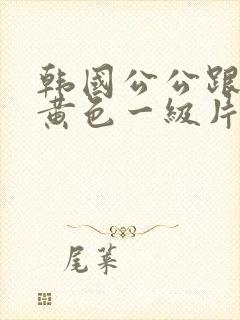 韩国公公跟
黄色一级片
尾菜